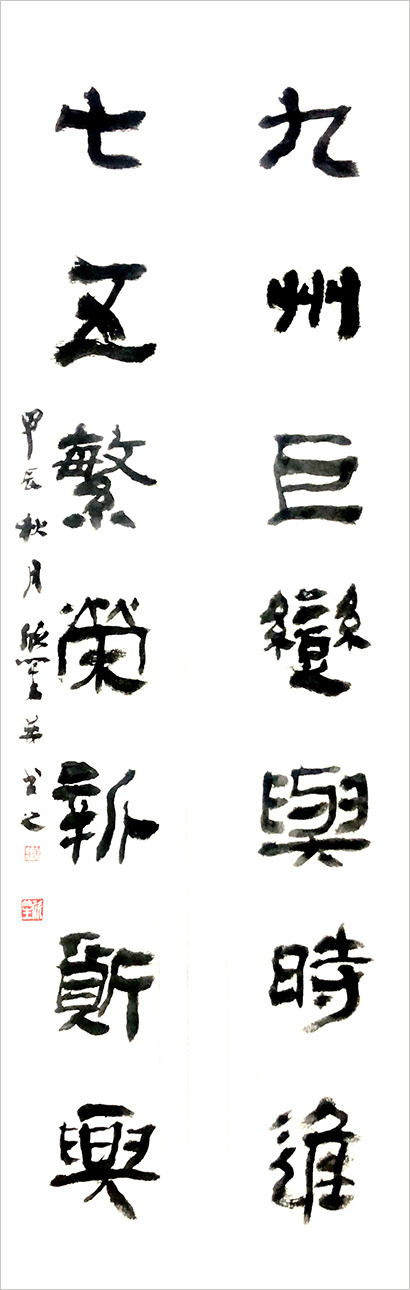 九州巨變與時進
七五繁榮新質興
甲辰秋月 書之